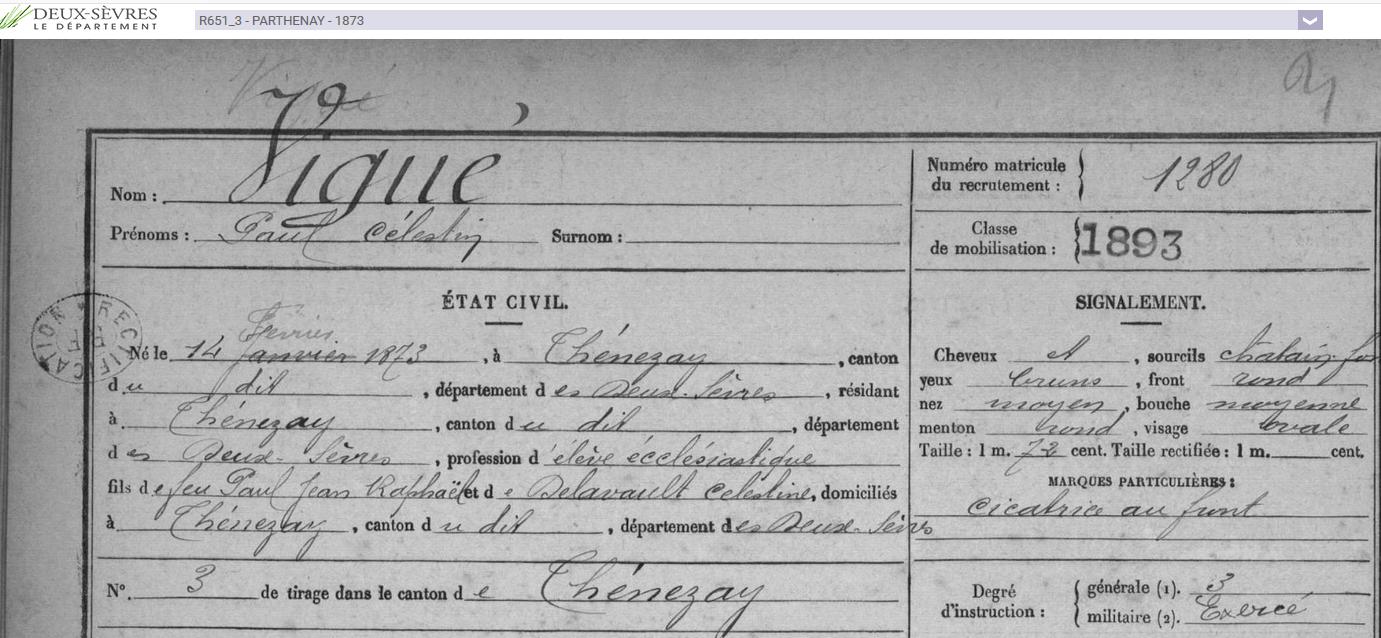 DEUX-SÈVRES
LE DÉPARTEMENT
R651_3 - PARTHENAY - 1873
Vigué
Nom : Vigué
Prénoms : Paul Célestin Surnom :
Numéro matricule du recrutement : 1280
Classe de mobilisation : 1893
ÉTAT CIVIL.
Février
Né le 14 janvier 1873, à Thénezay, canton
du dit, département des Deux-Sèvres, résidant
à Thénezay, canton du dit, département
des Deux-Sèvres, profession d'élève écclésiastique
fils de feu Paul Jean Raphaël et de Delavault Celestine, domiciliés
à Thénezay, canton du dit, département des Deux-Sèvres
N°. 3 de tirage dans le canton de Thénezay
SIGNALEMENT.
Cheveux et, sourcils chatain
yeux bruns, front rond
nez moyen, bouche moyenne
menton rond, visage ovale
Taille : 1 m. 72 cent. Taille rectifiée : 1 m. cent.
MARQUES PARTICULIÈRES :
cicatrice au front
Degré d'instruction :
générale (1). 3
militaire (2). Exercé